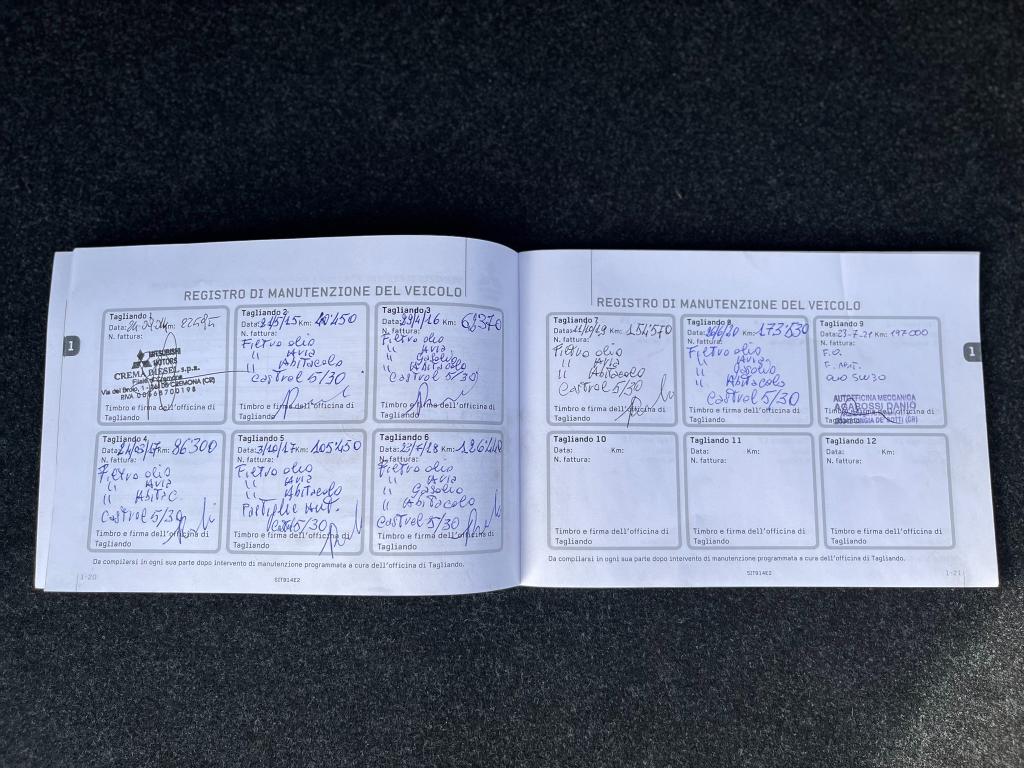 REGISTRO DI MANUTENZIONE DEL VEICOLO
Tagliando 1
Data: Km: 22595
N. fattura:
MITSUBISHI
MOTORS
CREMA DIESEL s.p.a.
Timbro e firma dell'officina di
Tagliando
Tagliando 2
Data: Km:
N. fattura:
Filtro olio
" Aria
" Abitacolo
Castrol 5/30
Timbro e firma dell'officina di
Tagliando
Tagliando 3
Data: 29/4/16 Km:
N. fattura:
Filtro olio
" Aria
" Gasolio
" Abitacolo
Castrol 5/30
Timbro e firma dell'officina di
Tagliando
1
Tagliando 4
Data: Km: 86300
N. fattura:
Filtro olio
" Aria
" Abitac.
Castrol 5/30
Timbro e firma dell'officina di
Tagliando
Tagliando 5
Data: 3/10/17 Km: 105450
N. fattura:
Filtro olio
" Aria
" Abitacolo
Pastiglie Ant.
5/30
Timbro e firma dell'officina di
Tagliando
Tagliando 6
Data: Km:
N. fattura:
Filtro olio
" Aria
" Gasolio
" Abitacolo
Castrol 5/30
Timbro e firma dell'officina di
Tagliando
Da compilarsi in ogni sua parte dopo intervento di manutenzione programmata a cura dell'officina di Tagliando.
1-20
SIT914E2
REGISTRO DI MANUTENZIONE DEL VEICOLO
Tagliando 7
Data: Km: 154570
N. fattura:
Filtro olio
" Aria
" Abitacolo
Castrol 5/30
Timbro e firma dell'officina di
Tagliando
Tagliando 8
Data: Km: 173530
N. fattura:
Filtro olio
" Aria
" Gasolio
" Abitacolo
Castrol 5/30
Timbro e firma dell'officina di
Tagliando
Tagliando 9
Data: 23-7-21 Km: 197000
N. fattura:
F.O.
OLIO 5W30
AUTOFFICINA MECCANICA
Tagliando
1
Tagliando 10
Data: Km:
N. fattura:
Timbro e firma dell'officina di
Tagliando
Tagliando 11
Data: Km:
N. fattura:
Timbro e firma dell'officina di
Tagliando
Tagliando 12
Data: Km:
N. fattura:
Timbro e firma dell'officina di
Tagliando
Da compilarsi in ogni sua parte dopo intervento di manutenzione programmata a cura dell'officina di Tagliando.
SIT914E2
1-21